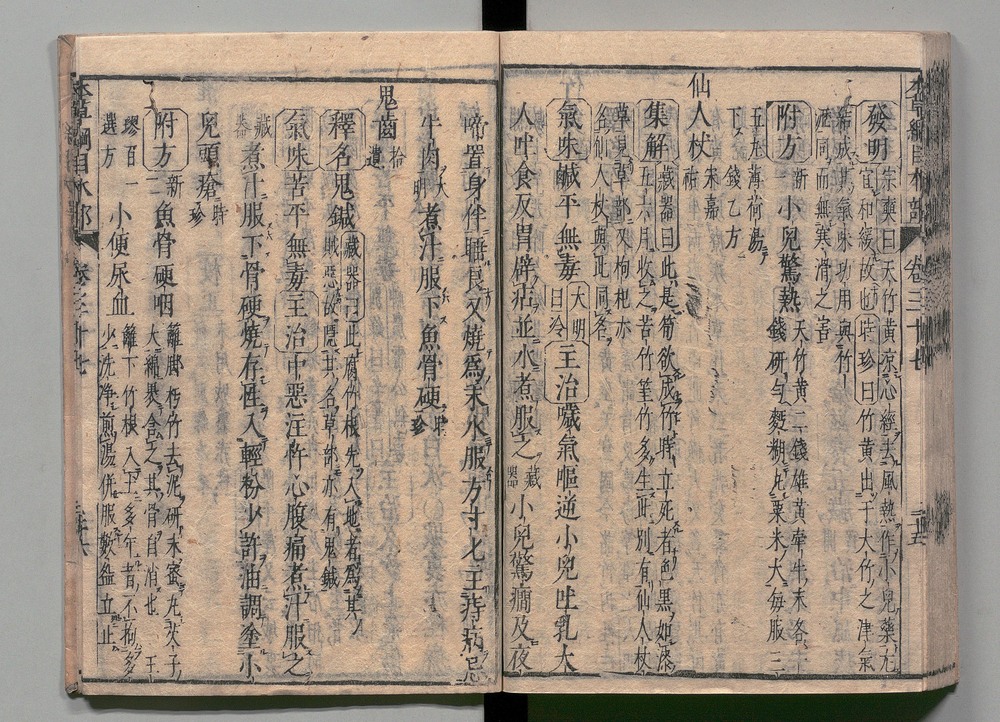 本草綱目木部 卷三十七 三十五
發明 宗奭曰天竹黃涼心經去風熱作小兒藥尤
宜和緩故也時珍曰竹黃出于大竹之津氣
結成其氣味功用與竹
瀝同而無寒滑之害
附方 新一 小兒驚熱 天竹黃二錢雄黃牽牛末各一
錢研勻麪糊丸粟米大每服三
五丸薄荷湯
下 錢乙方
仙人杖 宋嘉祐
集解 藏器曰此是筍欲成竹時立死者色黑如漆
五六月收之苦竹筀竹多生此別有仙人杖
草見草部又枸杞亦
名仙人杖與此同名
氣味鹹平無毒 大明曰冷 主治噦氣嘔逆小兒吐乳大
人吐食反胃辟痁並水煮服之 藏器 小兒驚癇及夜
啼置身伴睡良又燒爲末水服方寸匕主痔病忌
牛肉 大明 煮汁服下魚骨硬 時珍
鬼齒 拾遺
釋名鬼鍼 藏器曰此腐竹根先入地者爲其
賊惡故隱其名草部亦有鬼鍼
氣味苦平無毒主治中惡注忤心腹痛煮汁服之
藏器 煮汁服下骨硬燒存性入輕粉少許油調塗小
兒頭瘡 時珍
附方 新二 魚骨硬咽 籬脚朽竹去泥研末蜜丸芡子
大綿裹含之其骨自消也 王
璆百一
選方 小便尿血 籬下竹根入土多年者不拘多
少洗淨煎湯併服數盌立止
卷三十七 三十六